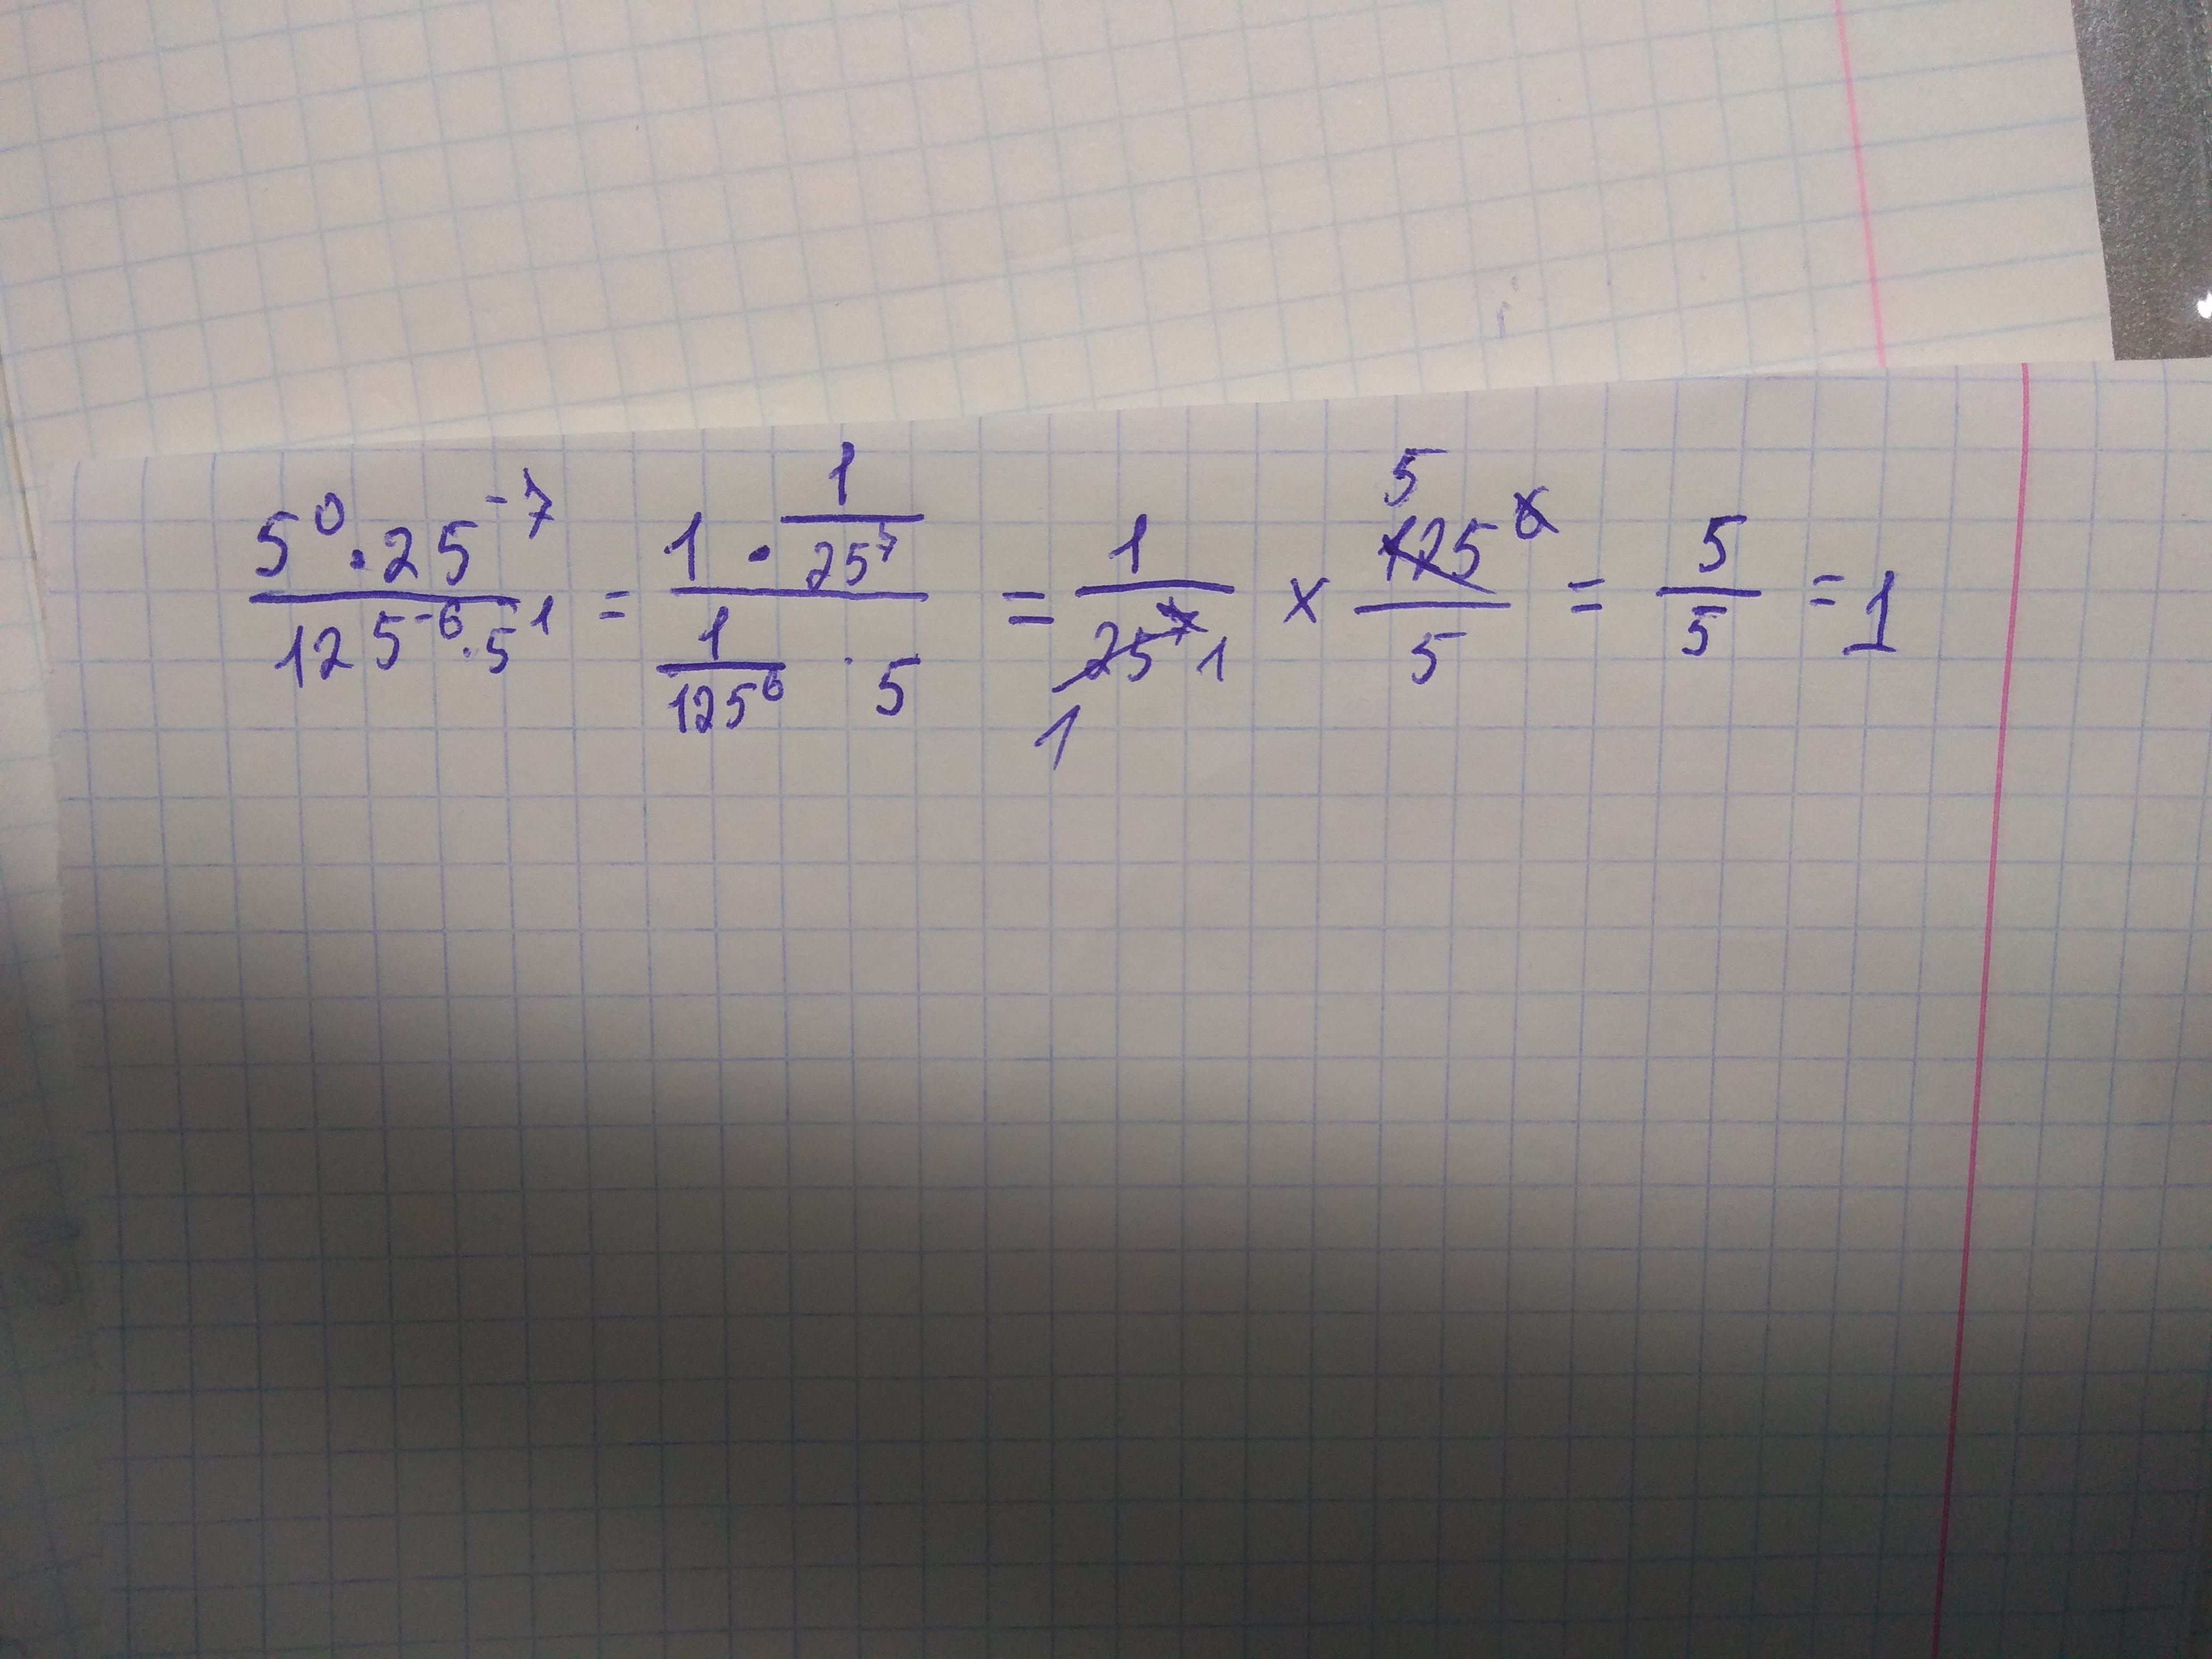 5⁰·25⁻⁷/125⁻⁶·5¹ = (1 · 1/25⁷)/(1/125⁶ · 5) = 1/25⁷ 1 1 × 5 125⁶/5 = 5/5 = 1